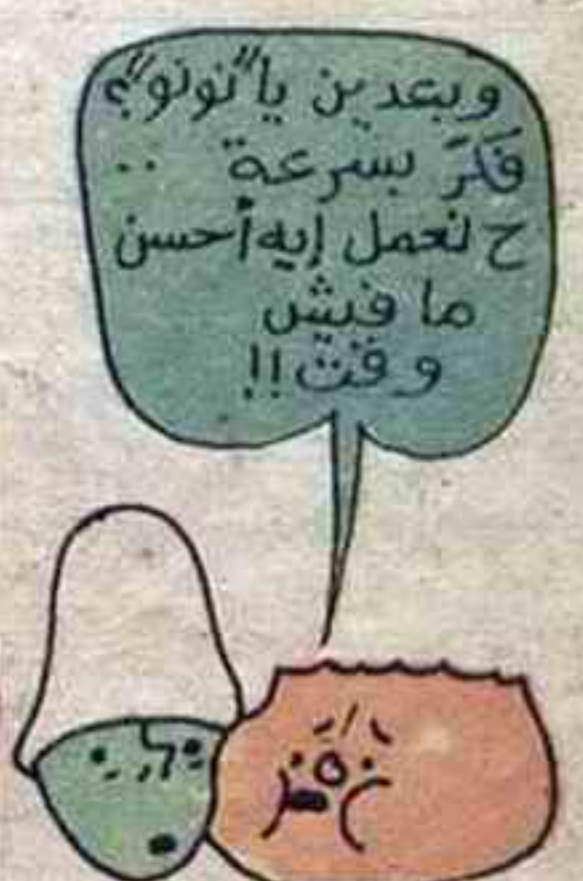 وبعدين يا "نونو"؟
فَكَّرَ بسرعة ..
ح نعمل إيه أحسن
ما فيش
وقت !!